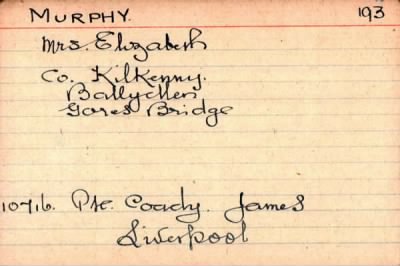 MURPHY. 193
Mrs. Elizabeth
Co. Kilkenny.
Ballyellen
Gores Bridge
10716. Pte. Coady. James
Liverpool